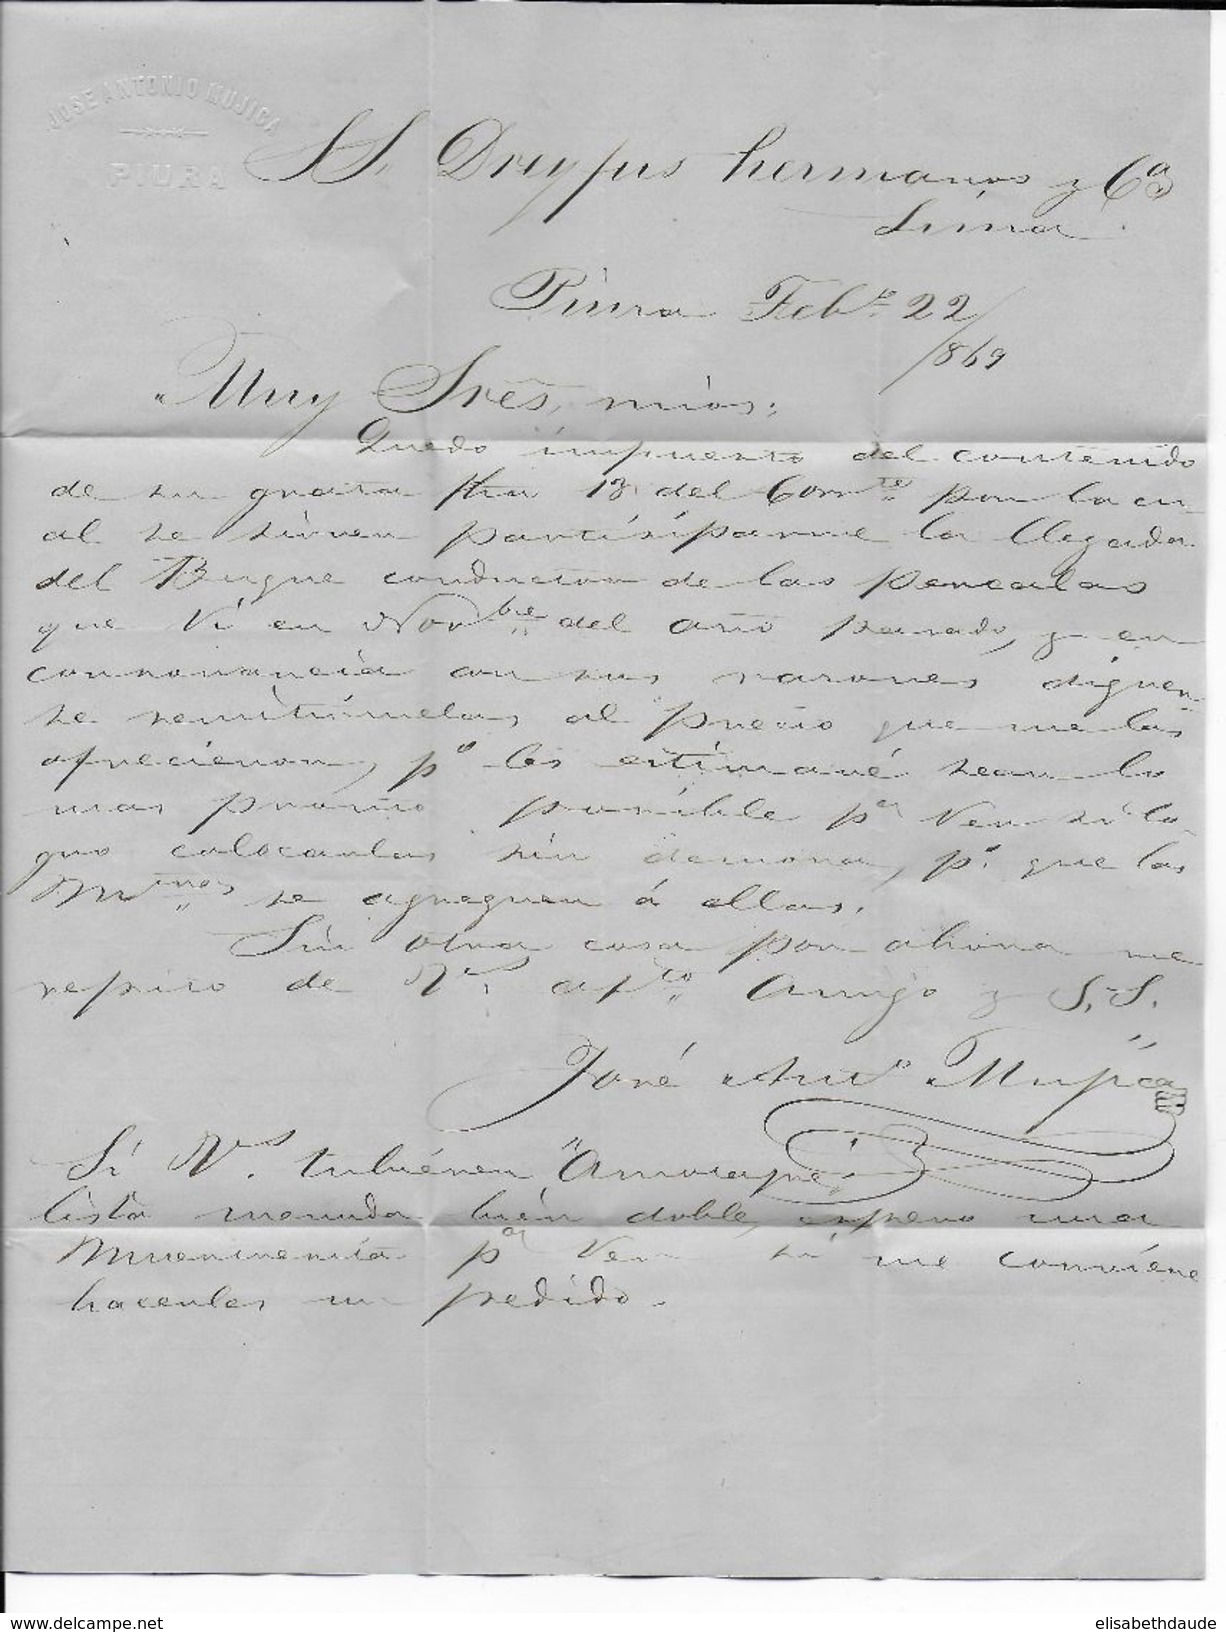 JOSE ANTONIO MUJICA
PIURA
SS. Dreyfus hermanos y Ca
Lima.
Piura Febo. 22/869
Muy Sres, mios;
Quedo impuesto del contenido
de su grata fha 13 del Corrte por la cu
al se sirven partisiparme la llegada
del Buque conductor de las percalas
que ví en Novbre del año pasado, y en
consonancia con sus rasones diguen-
se remitírmelas al precio que me las
ofrecieron, po les estimaré sean lo
mas pronto posible pa ver si lo-
gro colocarlas sin demora, po que las
se agreguen á ellas.
Sin otra cosa por ahora me
repito de Vs. afcto Amigo y S.S.
José Anto Mujica
Sí Vs. tubiéren "Amotape"
lista menuda bién doble, espero una
Muestresita pa ver si me conviéne
hacerles un pedido.
www.delcampe.net
elisabethdaude